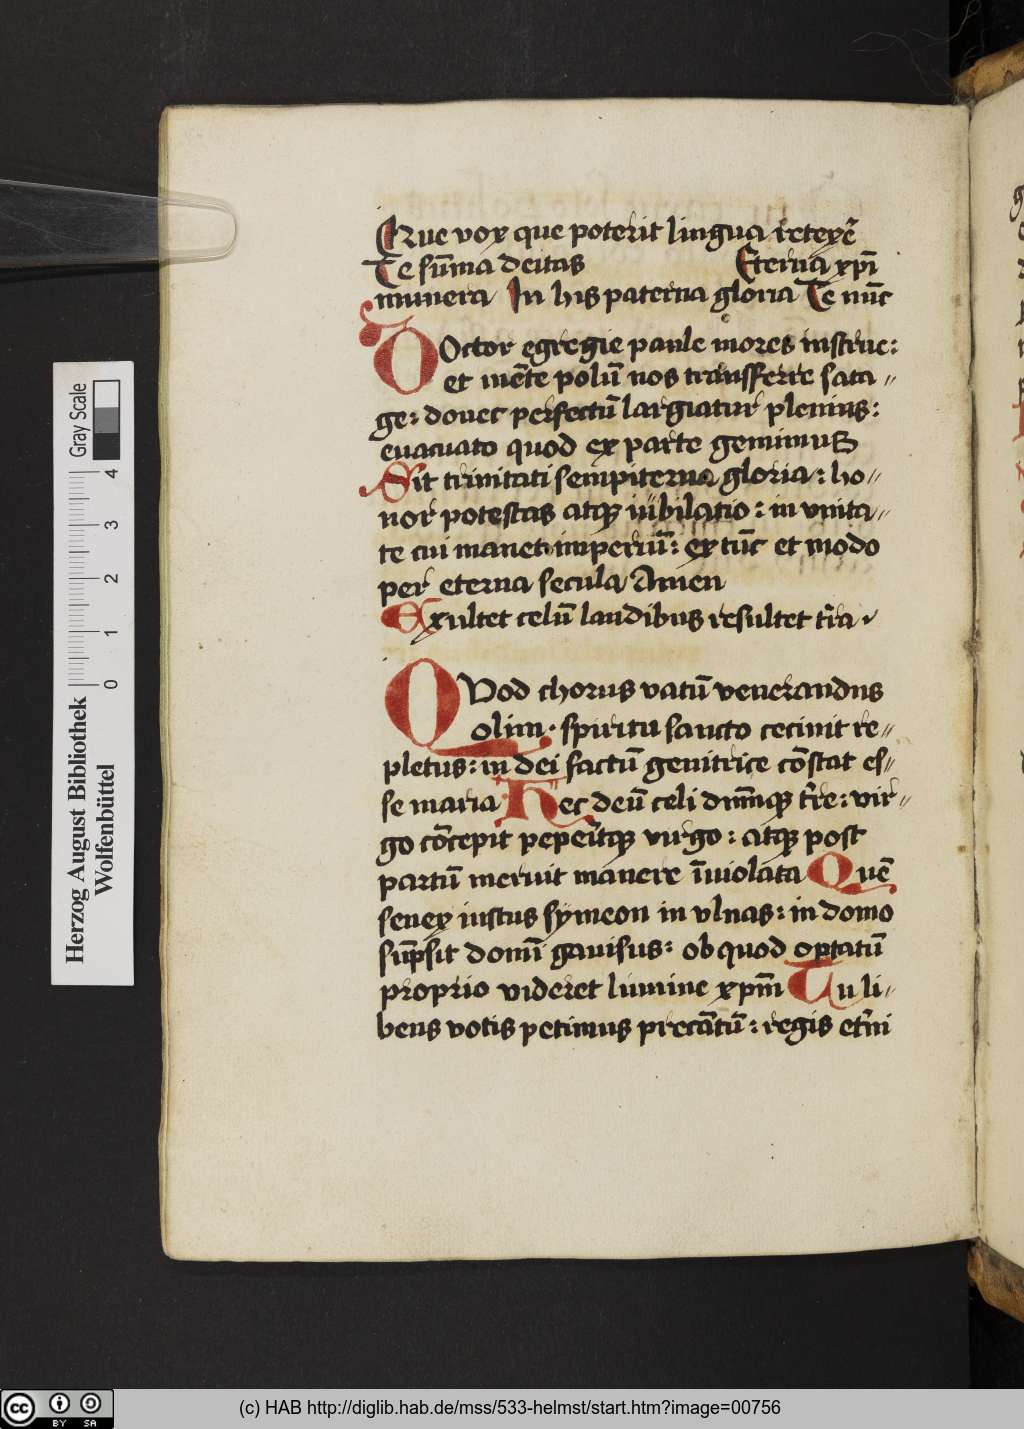 Que vox que poterit lingua retexe᷑
Te sūma deitas Eterna xpī
munera In his paterna gloria Te nūc
DOctor egregie paule mores instrue:
et mēte polū nos transfferre sata〃
ge: donec perfectū largiatur plenius:
euacuato quod ex parte gemimus
Sit trinitati sempiterna gloria: ho〃
nor potestas atqꝫ iubilatio: in vnita〃
te cui manet imperiū: ex tūc et modo
per eterna secula Amen
Exultet celū laudibus resultet t᷑ra
QVod chorus vatū venerandus
olim. spiritu sancto cecinit re〃
pletus: in dei factū genitrice cōstat es〃
se maria Hec deū celi dn̄mqꝫ t᷑re: vir〃
go cōcepit pepe᷑itqꝫ virgo: atqꝫ post
partū meruit manere īuiolata Quē
senex iustus symeon in vlnas: in domo
sūpsit domī gauisus: ob quod optatū
proprio videret lumine xpm̄ Tu li〃
bens votis petimus precātū: regis et᷑ni
Gray Scale
4
3
2
1
0
Herzog August Bibliothek
Wolfenbüttel
cc BY SA
(c) HAB http://diglib.hab.de/mss/533-helmst/start.htm?image=00756